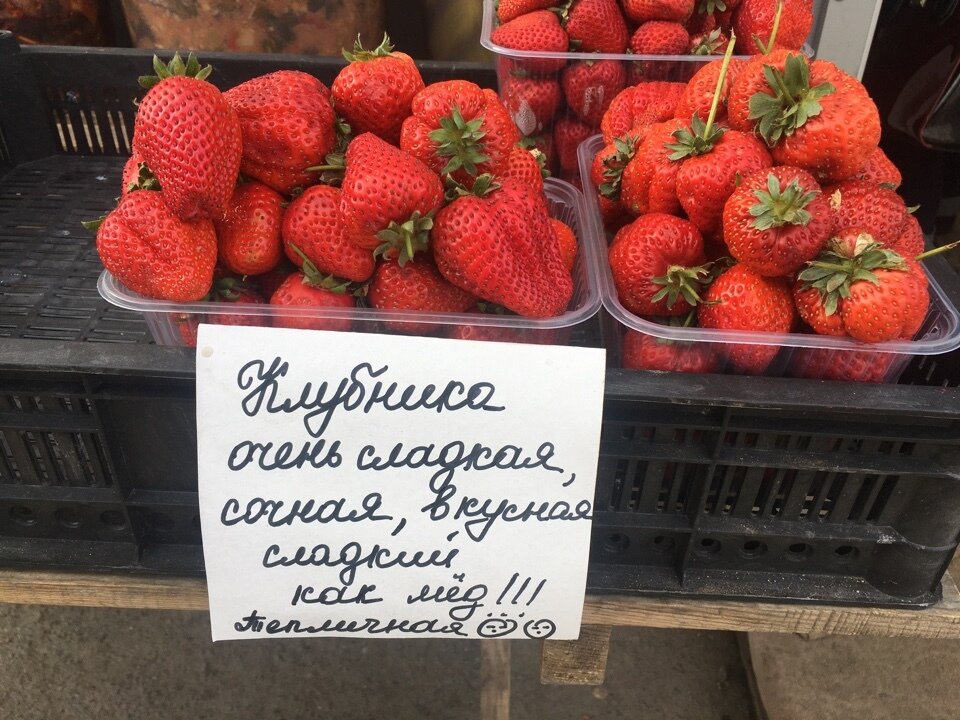 Клубника
очень сладкая,
сочная, вкусная
сладкий
как мёд!!!
Тепличная